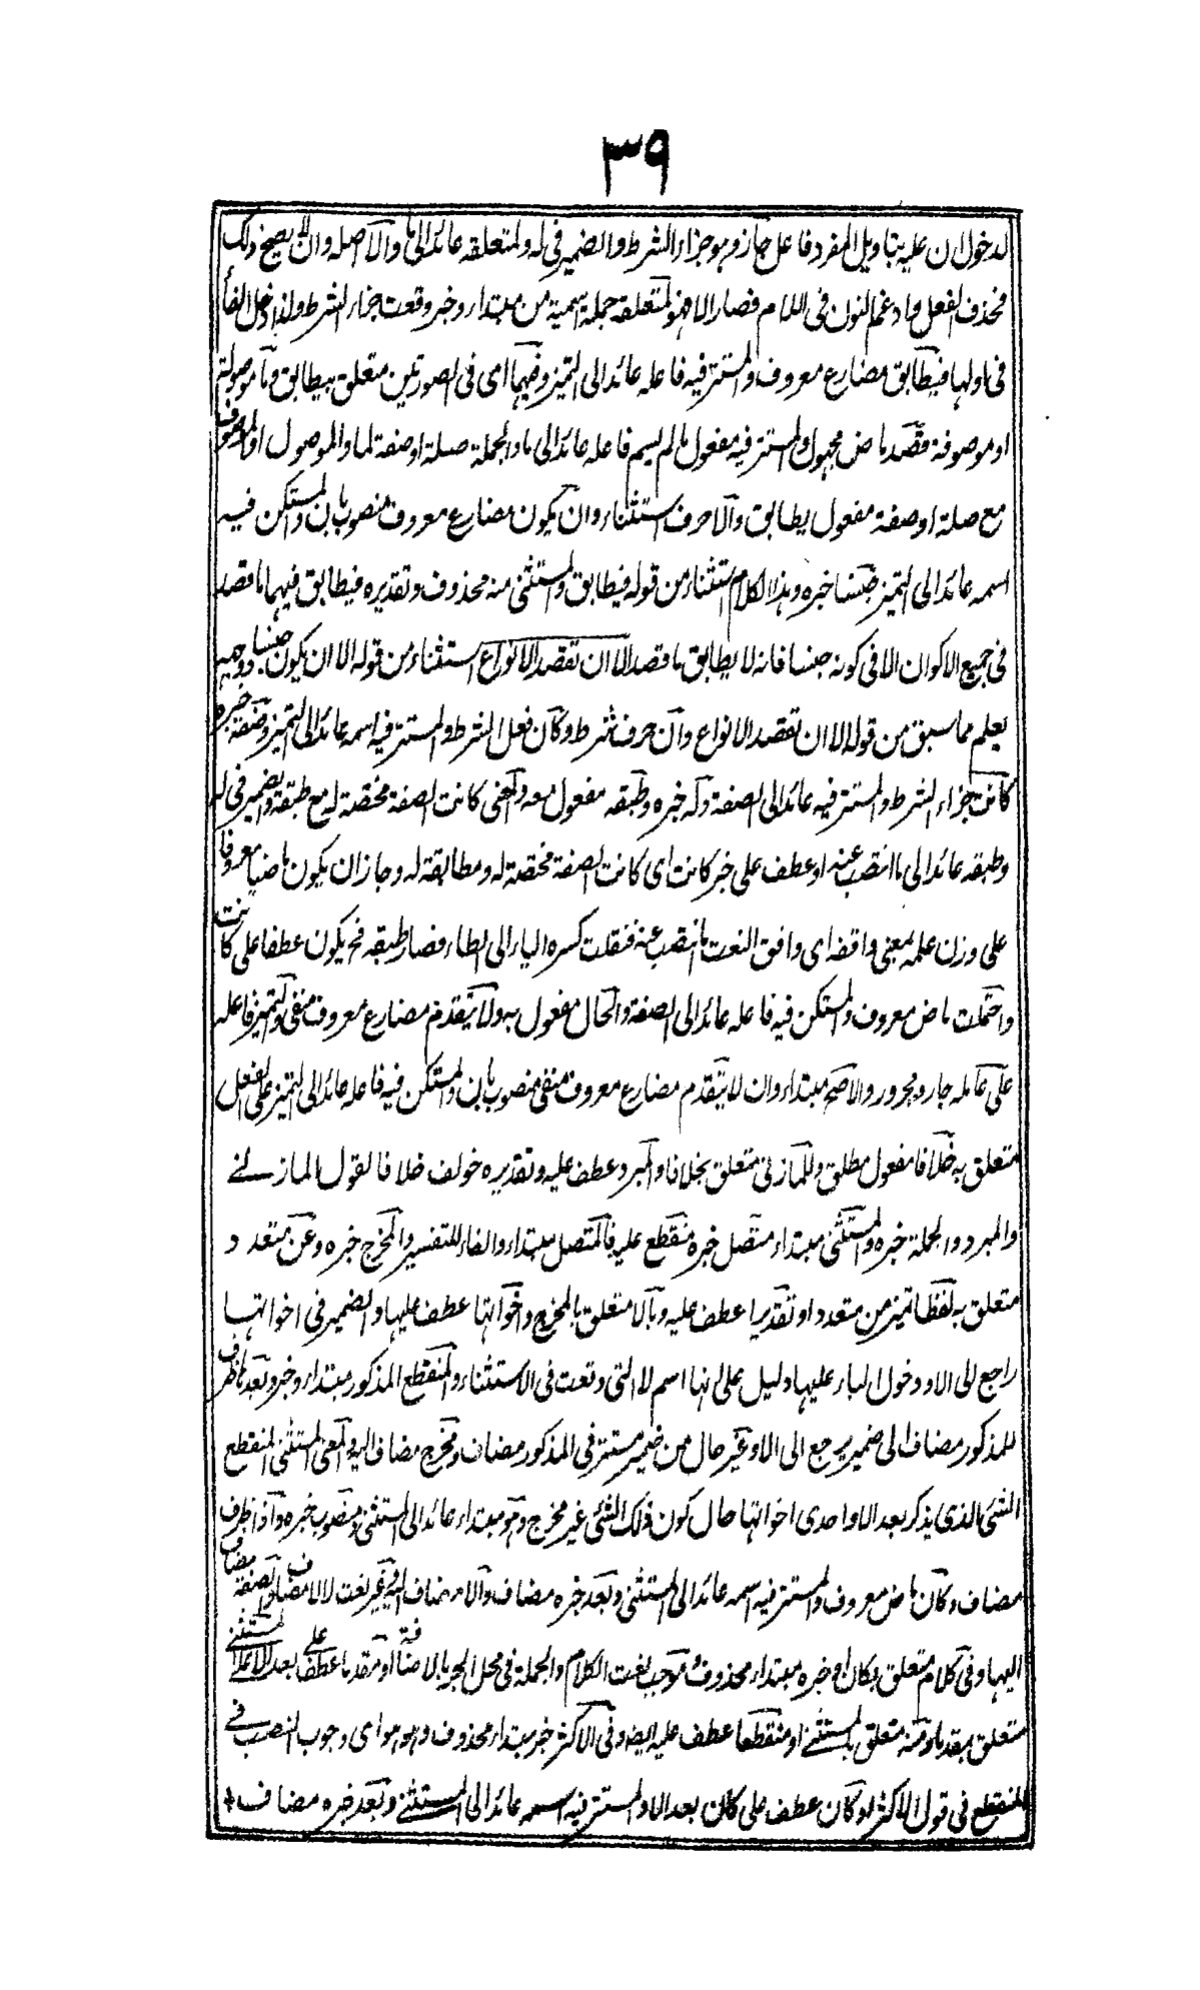 ٣٩
لدخول ان عليه بتاويل المفرد فاعل جاز وهو جزاء الشرط والضمير فى له ولمتعلقه عائد الى ما والاصله وان لا يصح ذلك
فحذف الفعل وادغم النون فى اللام فصار الا فهو لمتعلقه جملة اسمية من مبتداء وخبر وقعت جزاء الشرط ولذا دخل الفاء
فى اولها فيطابق مضارع معروف والمستتر فيه فاعله عائد الى التميز وفيهما اى فى الصورتين متعلق بيطابق وما موصولة
او موصوفة قصد ماض مجهول والمستتر فيه مفعول مالم يسم فاعله عائد الى ما والجملة صلة او صفة لما والموصول او الموصوف
مع صلة او صفة مفعول يطابق والا حرف استثناء وان يكون مضارع معروف منصوب بان والمستكن فيه
اسمه عائد الى التميز جنسا خبره وهذا الكلام استثناء من قوله فيطابق والمستثنى منه محذوف وتقديره فيطابق فيهما ما قصد
فى جميع الاكوان الا فى كونه جنسا فانه لا يطابق ما قصد الا ان تقصد الانواع استثناء من قوله الا ان يكون جنسا ووجهه
يعلم مما سبق من قوله الا ان تقصد الانواع وان حرف شرط وكان فعل الشرط والمستتر فيه اسمه عائد الى التميز وصفة خبره
كانت جزاء الشرط والمستتر فيه عائد الى الصفة وله خبره وطبقه مفعول معه والمعنى كانت الصفة مختصة له مع طبقة والضمير فى له
وطبقه عائد الى ما انتصب عنه او عطف على خبر كانت اى كانت الصفة مختصة له ومطابقة له وجاز ان يكون ماضيا معروفا
على وزن علمه بمعنى وافقه اى وافق النعت ما انتصب عنه فنقلت كسره الياء الى الطاء فصار طبقه فح يكون عطفا على كانت
واحتملت ماض معروف والمستكن فيه فاعله عائد الى الصفة والحال مفعول به ولا يتقدم مضارع معروف منفى والتميز فاعله
على عامله جار ومجرور والاصح مبتداء وان لا يتقدم مضارع معروف منفى منصوب بان والمستكن فيه فاعله عائد الى التميز على الفعل
متعلق به خلافا مفعول مطلق وللمازنى متعلق بخلافا والمبرد عطف عليه وتقديره خولف خلافا لقول المازنى
والمبرد والجملة خبره والمستثنى مبتداء متصل خبره منقطع عليه فالمتصل مبتداء والفاء للتفسير والمخرج خبره وعن متعدد
متعلق به لفظا تميز من متعدد او تقديرا عطف عليه وبالا متعلق بالمخرج واخواتها عطف عليها والضمير فى اخواتها
راجع الى الا ودخول الباء عليها دليل على انها اسم لا التى وقعت فى الاستثناء والمنقطع المذكور مبتداء وخبر وبعدها ظرف
للمذكور مضاف الى ضمير يرجع الى الا وغير حال من ضمير مستتر فى المذكور مضاف ومخرج مضاف اليه والمعنى المستثنى المنقطع
الشئ الذى يذكر بعد الا او احدى اخواتها حال كون ذلك الشئ غير مخرج وهو مبتداء عائد الى المستثنى ومنصوب خبره واذا ظرف
مضاف وكان ماض معروف والمستتر فيه اسمه عائد الى المستثنى وبعد خبره مضاف والا مضاف اليه وغير نعت لالا مضاف والصفة مضاف
اليها وفى كلام متعلق بكان او خبره مبتداء محذوف وموجب نعت الكلام والجملة فى محل الجر بالاضافة او مقدما عطف على بعد الا على المستثنى
متعلق بمقدما ومنه متعلق بالمستثنى او منقطعا عطف عليه ايضا وفى الاكثر خبر مبتداء محذوف وهو هو اى وجوب النصب فى
المنقطع فى قول الاكثر او كان عطف على كان بعد الا والمستتر فيه اسمه عائد الى المستثنى وبعد خبره مضاف